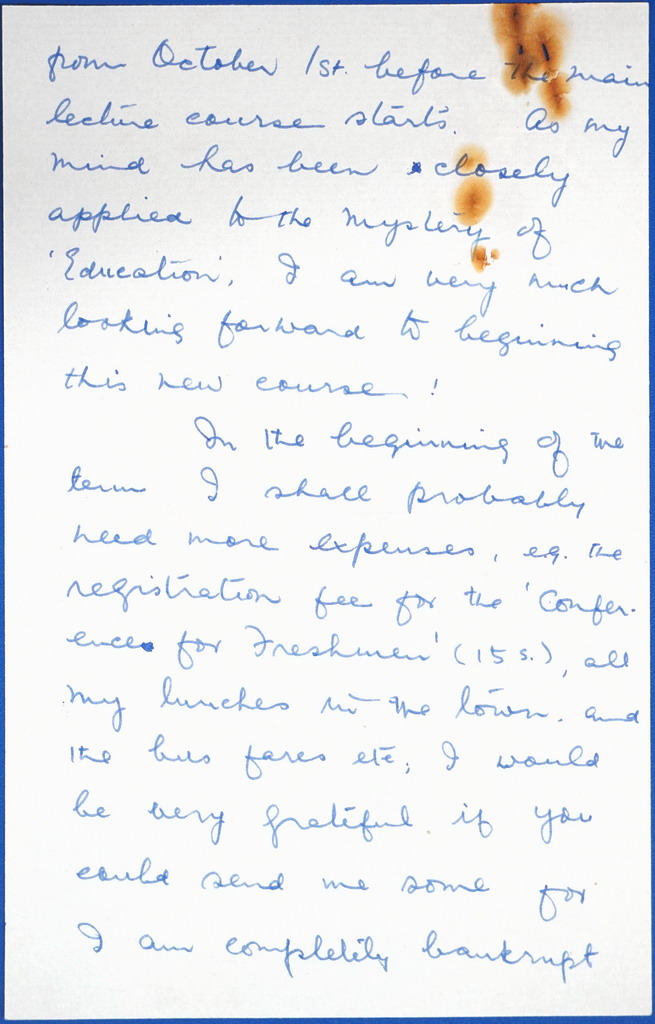 from October 1st. before the main
lecture course starts. As my
mind has been closely
applied to the mystery of
'Education', I am very much
looking forward to beginning
this new course!
In the beginning of the
term I shall probably
need more expenses, e.g. the
registration fee for the 'Confer-
ence for Freshmen' (15 s.), all
my lunches in the town. and
the bus fares etc; I would
be very grateful if you
could send me some for
I am completely bankrupt